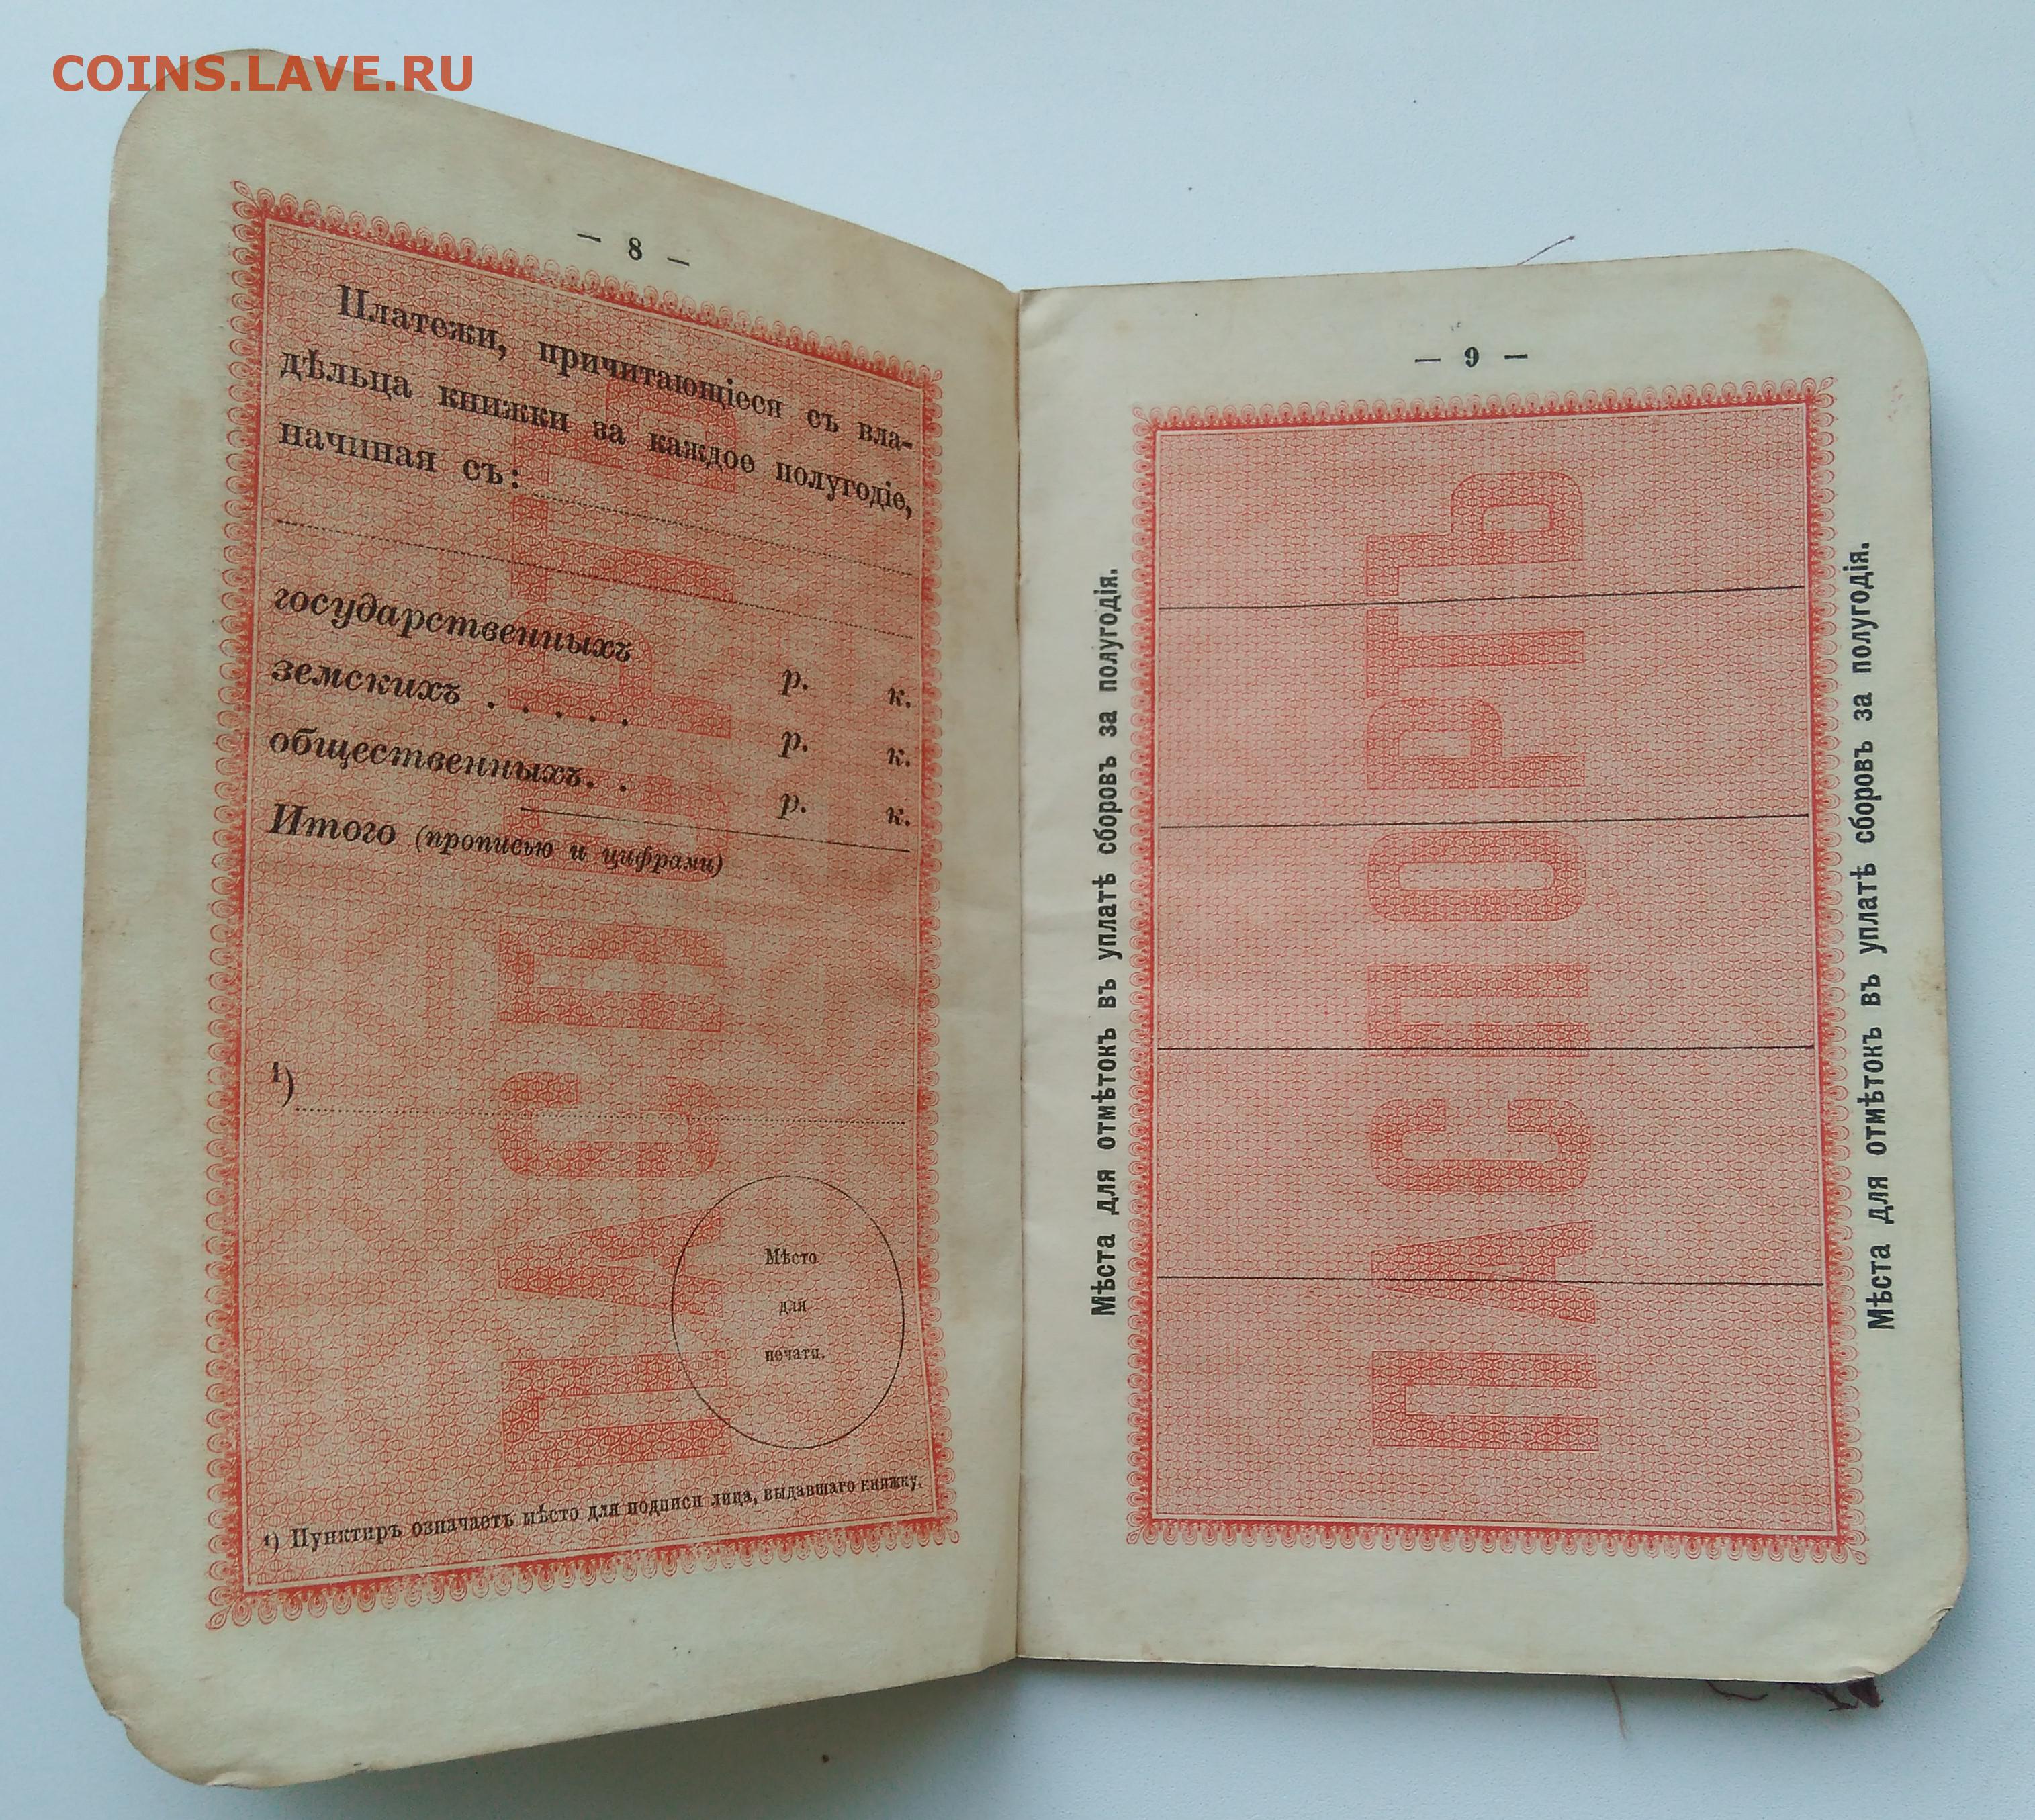 COINS.LAVE.RU
— 8 —
Платежи, причитающіеся съ вла-
дѣльца книжки за каждое полугодіе,
начиная съ:
государственныхъ р. к.
земскихъ . . . . . р. к.
общественныхъ. . р. к.
Итого (прописью и цифрами)
¹)
Мѣсто
для
печати.
¹) Пунктиръ означаетъ мѣсто для подписи лица, выдавшаго книжку.
ПАСПОРТЪ
— 9 —
Мѣста для отмѣтокъ въ уплатѣ сборовъ за полугодія.
ПАСПОРТЪ
Мѣста для отмѣтокъ въ уплатѣ сборовъ за полугодія.